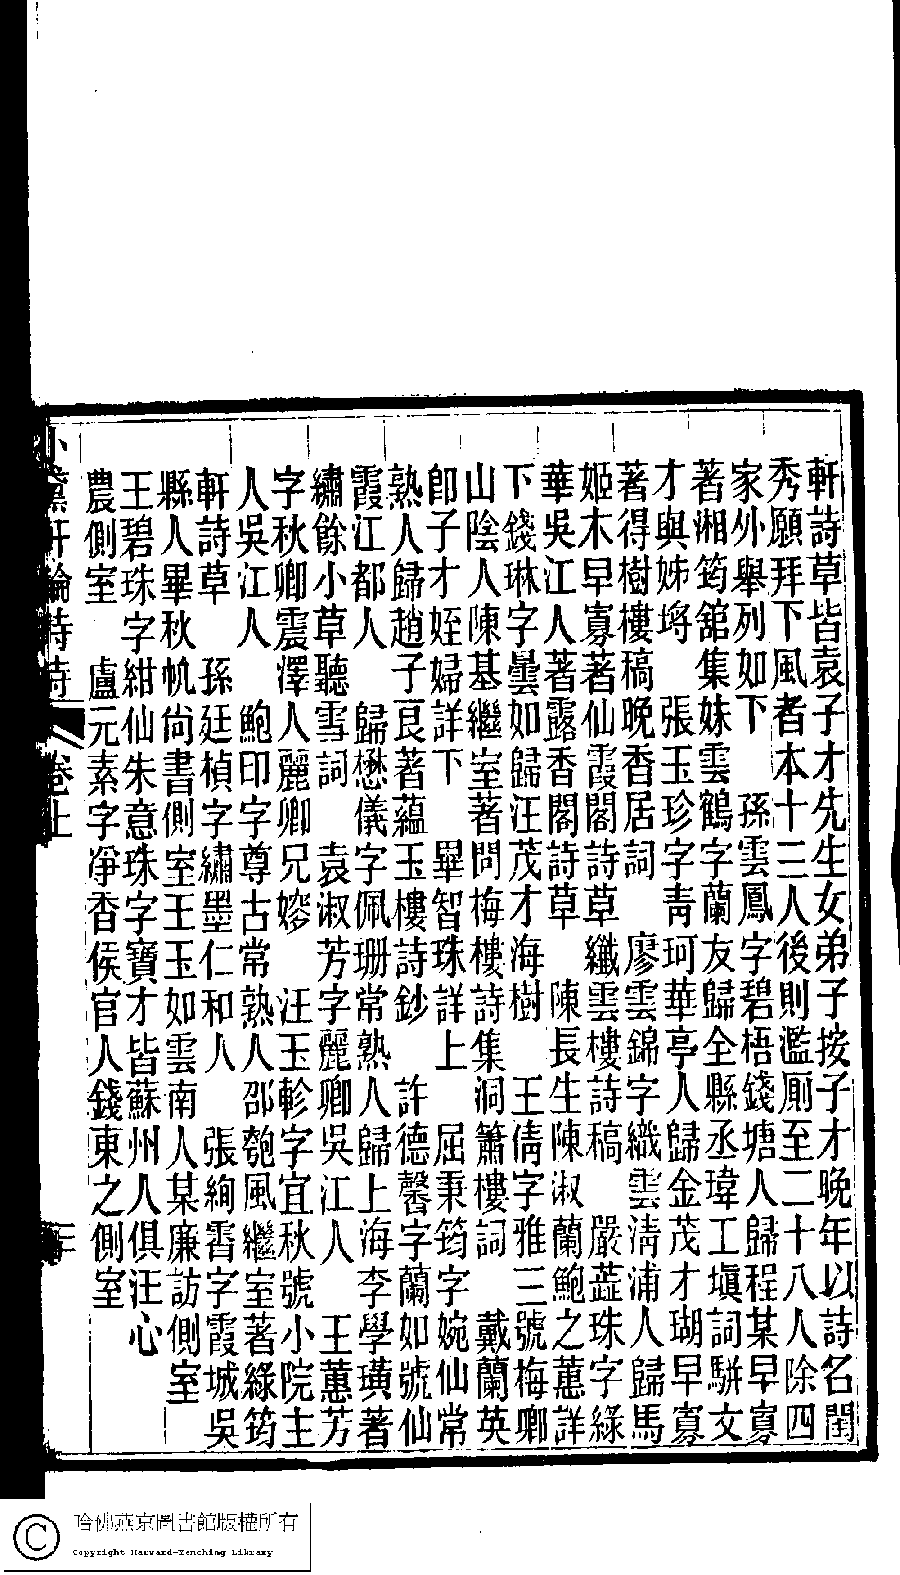 軒詩草皆袁子才先生女弟子按子才晚年以詩名閨
秀願拜下風者本十三人後則濫厠至二十八人除四
家外舉列如下　孫雲鳳字碧梧錢塘人歸程某早寡
著湘筠舘集妹雲鶴字蘭友歸全縣丞瑋工塡詞駢文
才與姊埒　張玉珍字靑珂華亭人歸金茂才瑚早寡
著得樹樓稿晚香居詞　廖雲錦字織雲淸浦人歸馬
姬木早寡著仙霞閣詩草纖雲樓詩稿　嚴蕋珠字綠
華吳江人著露香閣詩草　陳長生陳淑蘭鮑之蕙詳
下　錢琳字曇如歸汪茂才海樹　王倩字雅三號梅卿
山陰人陳基繼室著問梅樓詩集洞簫樓詞　戴蘭英
卽子才姪婦詳下　畢智珠詳上　屈秉筠字婉仙常
熟人歸趙子艮著蘊玉樓詩鈔　許德馨字蘭如號仙
霞江都人　歸懋儀字佩珊常熟人歸上海李學璜著
繡餘小草聽雪詞　袁淑芳字麗卿吳江人　王蕙芳
字秋卿震澤人麗卿兄嫂　汪玉軫字宜秋號小院主
人吳江人　鮑印字尊古常熟人邵匏風繼室著綠筠
軒詩草　孫廷楨字繡墨仁和人　張絢霄字霞城吳
縣人畢秋帆尙書側室王玉如雲南人某廉訪側室
王碧珠字紺仙朱意珠字寶才皆蘇州人俱汪心
農側室　盧元素字淨香侯官人錢東之側室
小黛軒論詩詩　卷上　三
哈佛燕京圖書館版權所有
Copyright Harvard-Yenching Library